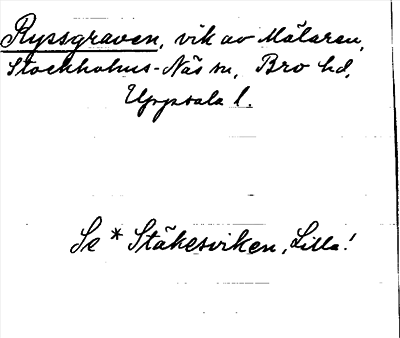 Ryssgraven, vik av Mälaren,
Stockholms-Näs sn, Bro hd,
Uppsala l.
Se * Stäkesviken, Lilla!